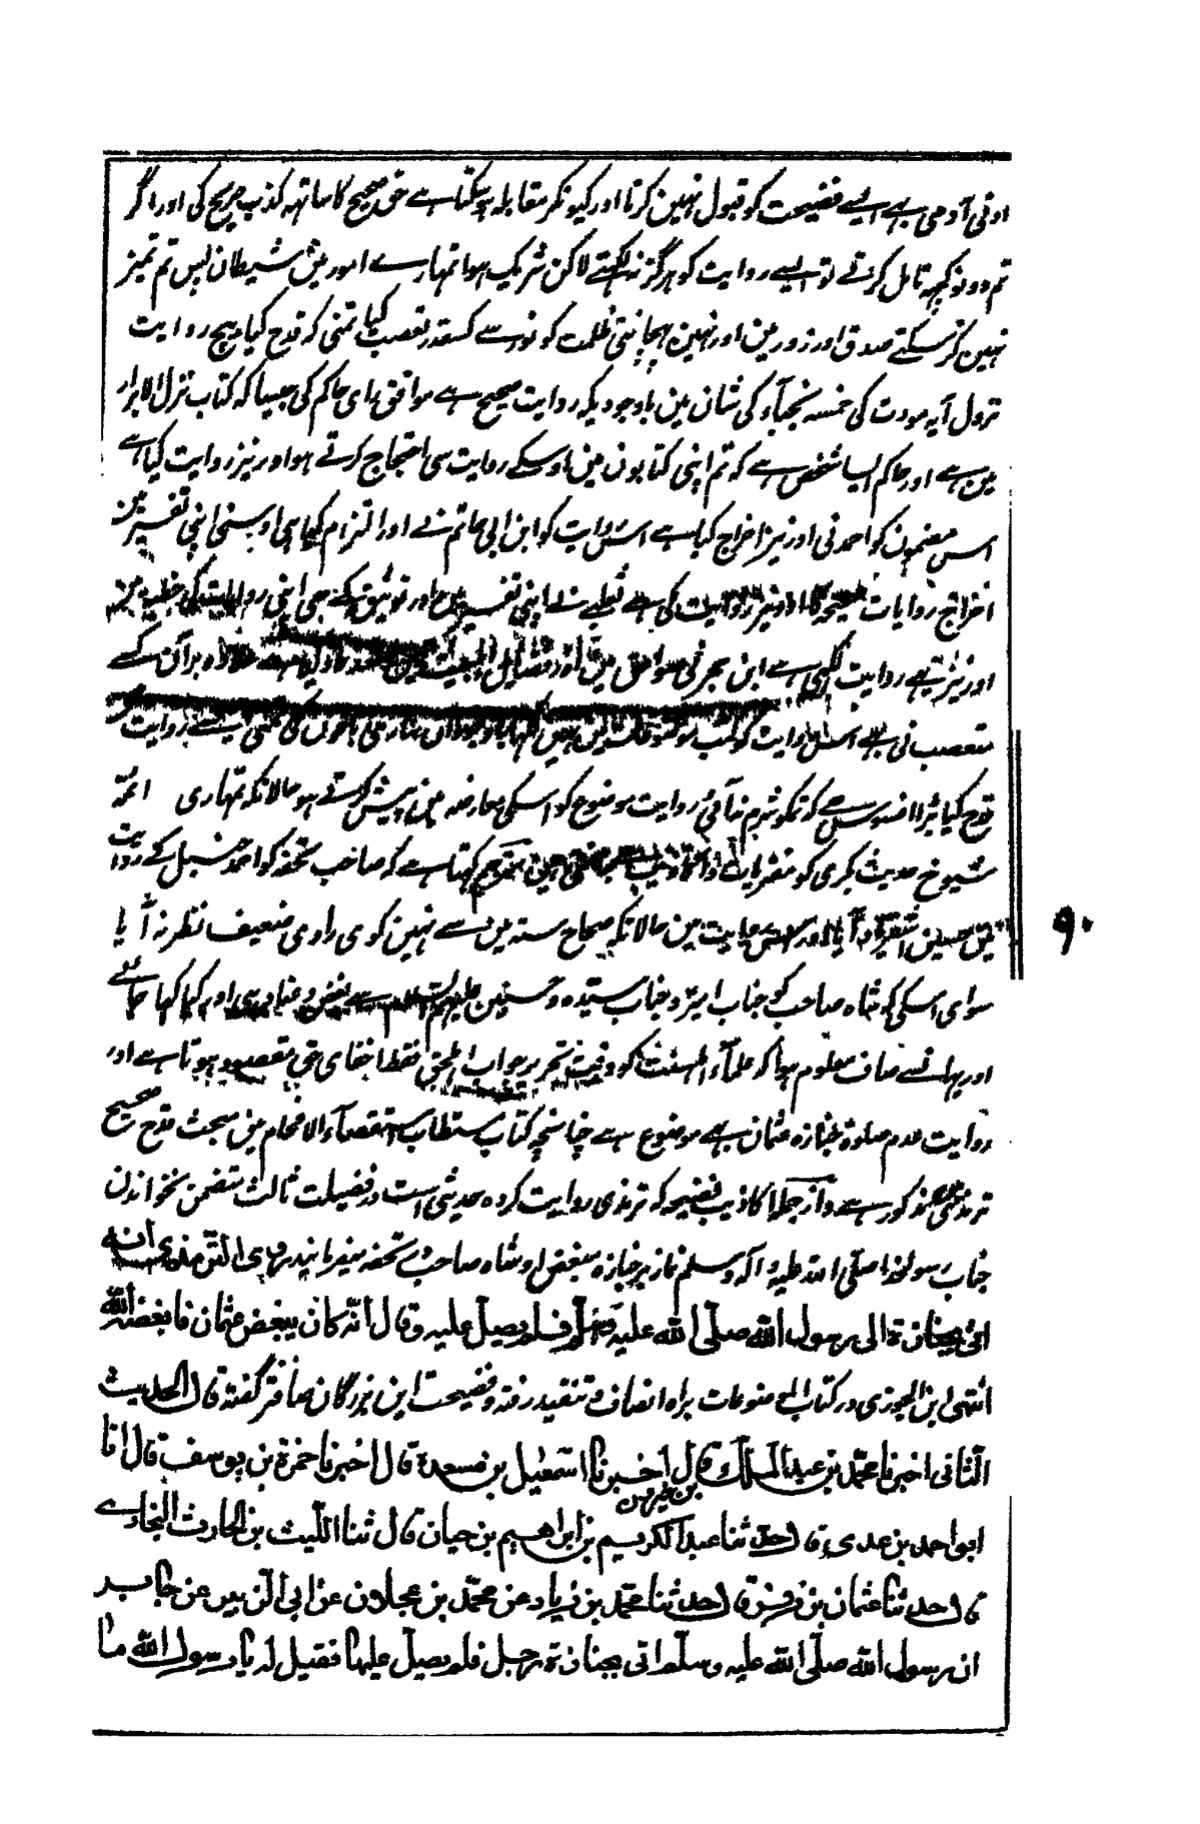 ادنی آدمی ہے ایسے فضیحت کو قبول نہین کرتا اور کیونکر مقابلہ ہوسکتا ہے حق صحیح کا ساتہہ کذب صریح کی اور اگر
تم دونو کچہہ تامل کرتے تو ایسے روایت کو ہرگز نہ لکہتے لاکن شریک ہوا تمہارے امور مین شیطان پس تم تمیز
نہین کرسکتے صدق اور زور مین اور نہین پہچانتی ظلمت کو نور سے کسقدر تعصب کیا تمنی کہ قدح کیا بیچ روایت
نزول آیہ مودت کی خمسہ نجبآء کی شان مین باوجودیکہ روایت صحیح ہے موافق رای حاکم کی جیسا کہ کتاب نزل الابرار
مین ہے اور حاکم ایسا شخص ہے کہ تم اپنی کتابون مین اوسکے روایت سی احتجاج کرتے ہو اور نیز روایت کیا ہے
اس مضمون کو احمد نی اور نیز اخراج کیا ہے اس روایت کو ابن ابی حاتم نے اور التزام کیا ہی اوسنی اپنی تفسیر مین
اخراج روایات صحیحہ کا اور نیز روایت کی ہے ثعلبے نے اپنی تفسیر مین اور توثیق کے ہی اپنی روایات کی خطبہ مین
اور نیز روایت لکہی ہے ابن حجر نی صواعق مین اور فضایل اہلبیت مین علاوہ بر آن کے
متعصب نی ہے اس روایت کو باوجود آن روایت مین
قدح کیا بڑا افسوس ہے کہ تمکو شرم نہ آئی روایت موضوع کو اسکی معارضہ مین پیش کرتے ہو حالانکہ تمہاری ائمّہ
شیوخ حدیث بکری کو مفتریات و اکاذیب سے مترجم کہتا ہے کہ صاحب تحفہ کو احمد حنبل کے روایت
مین حسین اشقر نظر آیا اور اس روایت مین حالانکہ صحاح ستہ مین سے نہین کوی راوی ضعیف نظر نہ آیا
سوای اسکی کہ شاہ صاحب کو جناب امیر و جناب سیدہ و حسنین علیہم السلام سے بغض و عناد ہی اور کیا کہا جائے
اور یہانسے صاف معلوم ہوا کہ علمآء اہلسنت کو وقت تحریر جواب اہل حق فقط اخفای حق مقصود ہوتا ہے اور
روایت عدم صلوۃ جنازہ عثمان ہے موضوع ہے چنانچہ کتاب مستطاب استقصآء الافحام مین مبحث قدح صحیح
ترمذی مذکور ہے و از جملہ اکاذیب فضیحہ کہ ترمذی روایت کردہ حدیثی است در فضیلت ثالث متضمن نخواندن
جناب رسولخدا صلّی اللہ علیہ و آلہ وسلم نماز بر جنازہ مبغض او شاہ صاحب در تحفہ میفرمایند روی الترمذی انہ
اتی بجنازة الی رسول اللّٰه صلّی اللّٰه علیہ وسلّم فلم یصلّ علیہ وقال انّہ کان یبغض عثمان فابغضہ اللّٰه
انتہی ابن الجوزی در کتاب الموضوعات براہ انصاف و تنقید رفتہ و فضیحت این بزرگان خواستہ گفتہ قال الحدیث
الثانی اخبرنا محمّد بن عبد الملک بن خیرون قال اخبرنا اسمعیل بن مسعدة قال اخبرنا حمزة بن یوسف قال انا
ابو احمد بن عدی قال حدثنا عبد الکریم بن ابراھیم بن حیان قال ثنا اللّیث بن الحارث البخارے
قال حدثنا عثمان بن زفر قال حدثنا محمّد بن زیاد عن محمّد بن عجلان عن ابی الزبیر عن جابر
ان رسول اللّٰه صلّی اللّٰه علیہ وسلّم اتی بجنازة رجل فلم یصلّ علیہا فقیل لہ یا رسول اللّٰه ما
۹۰